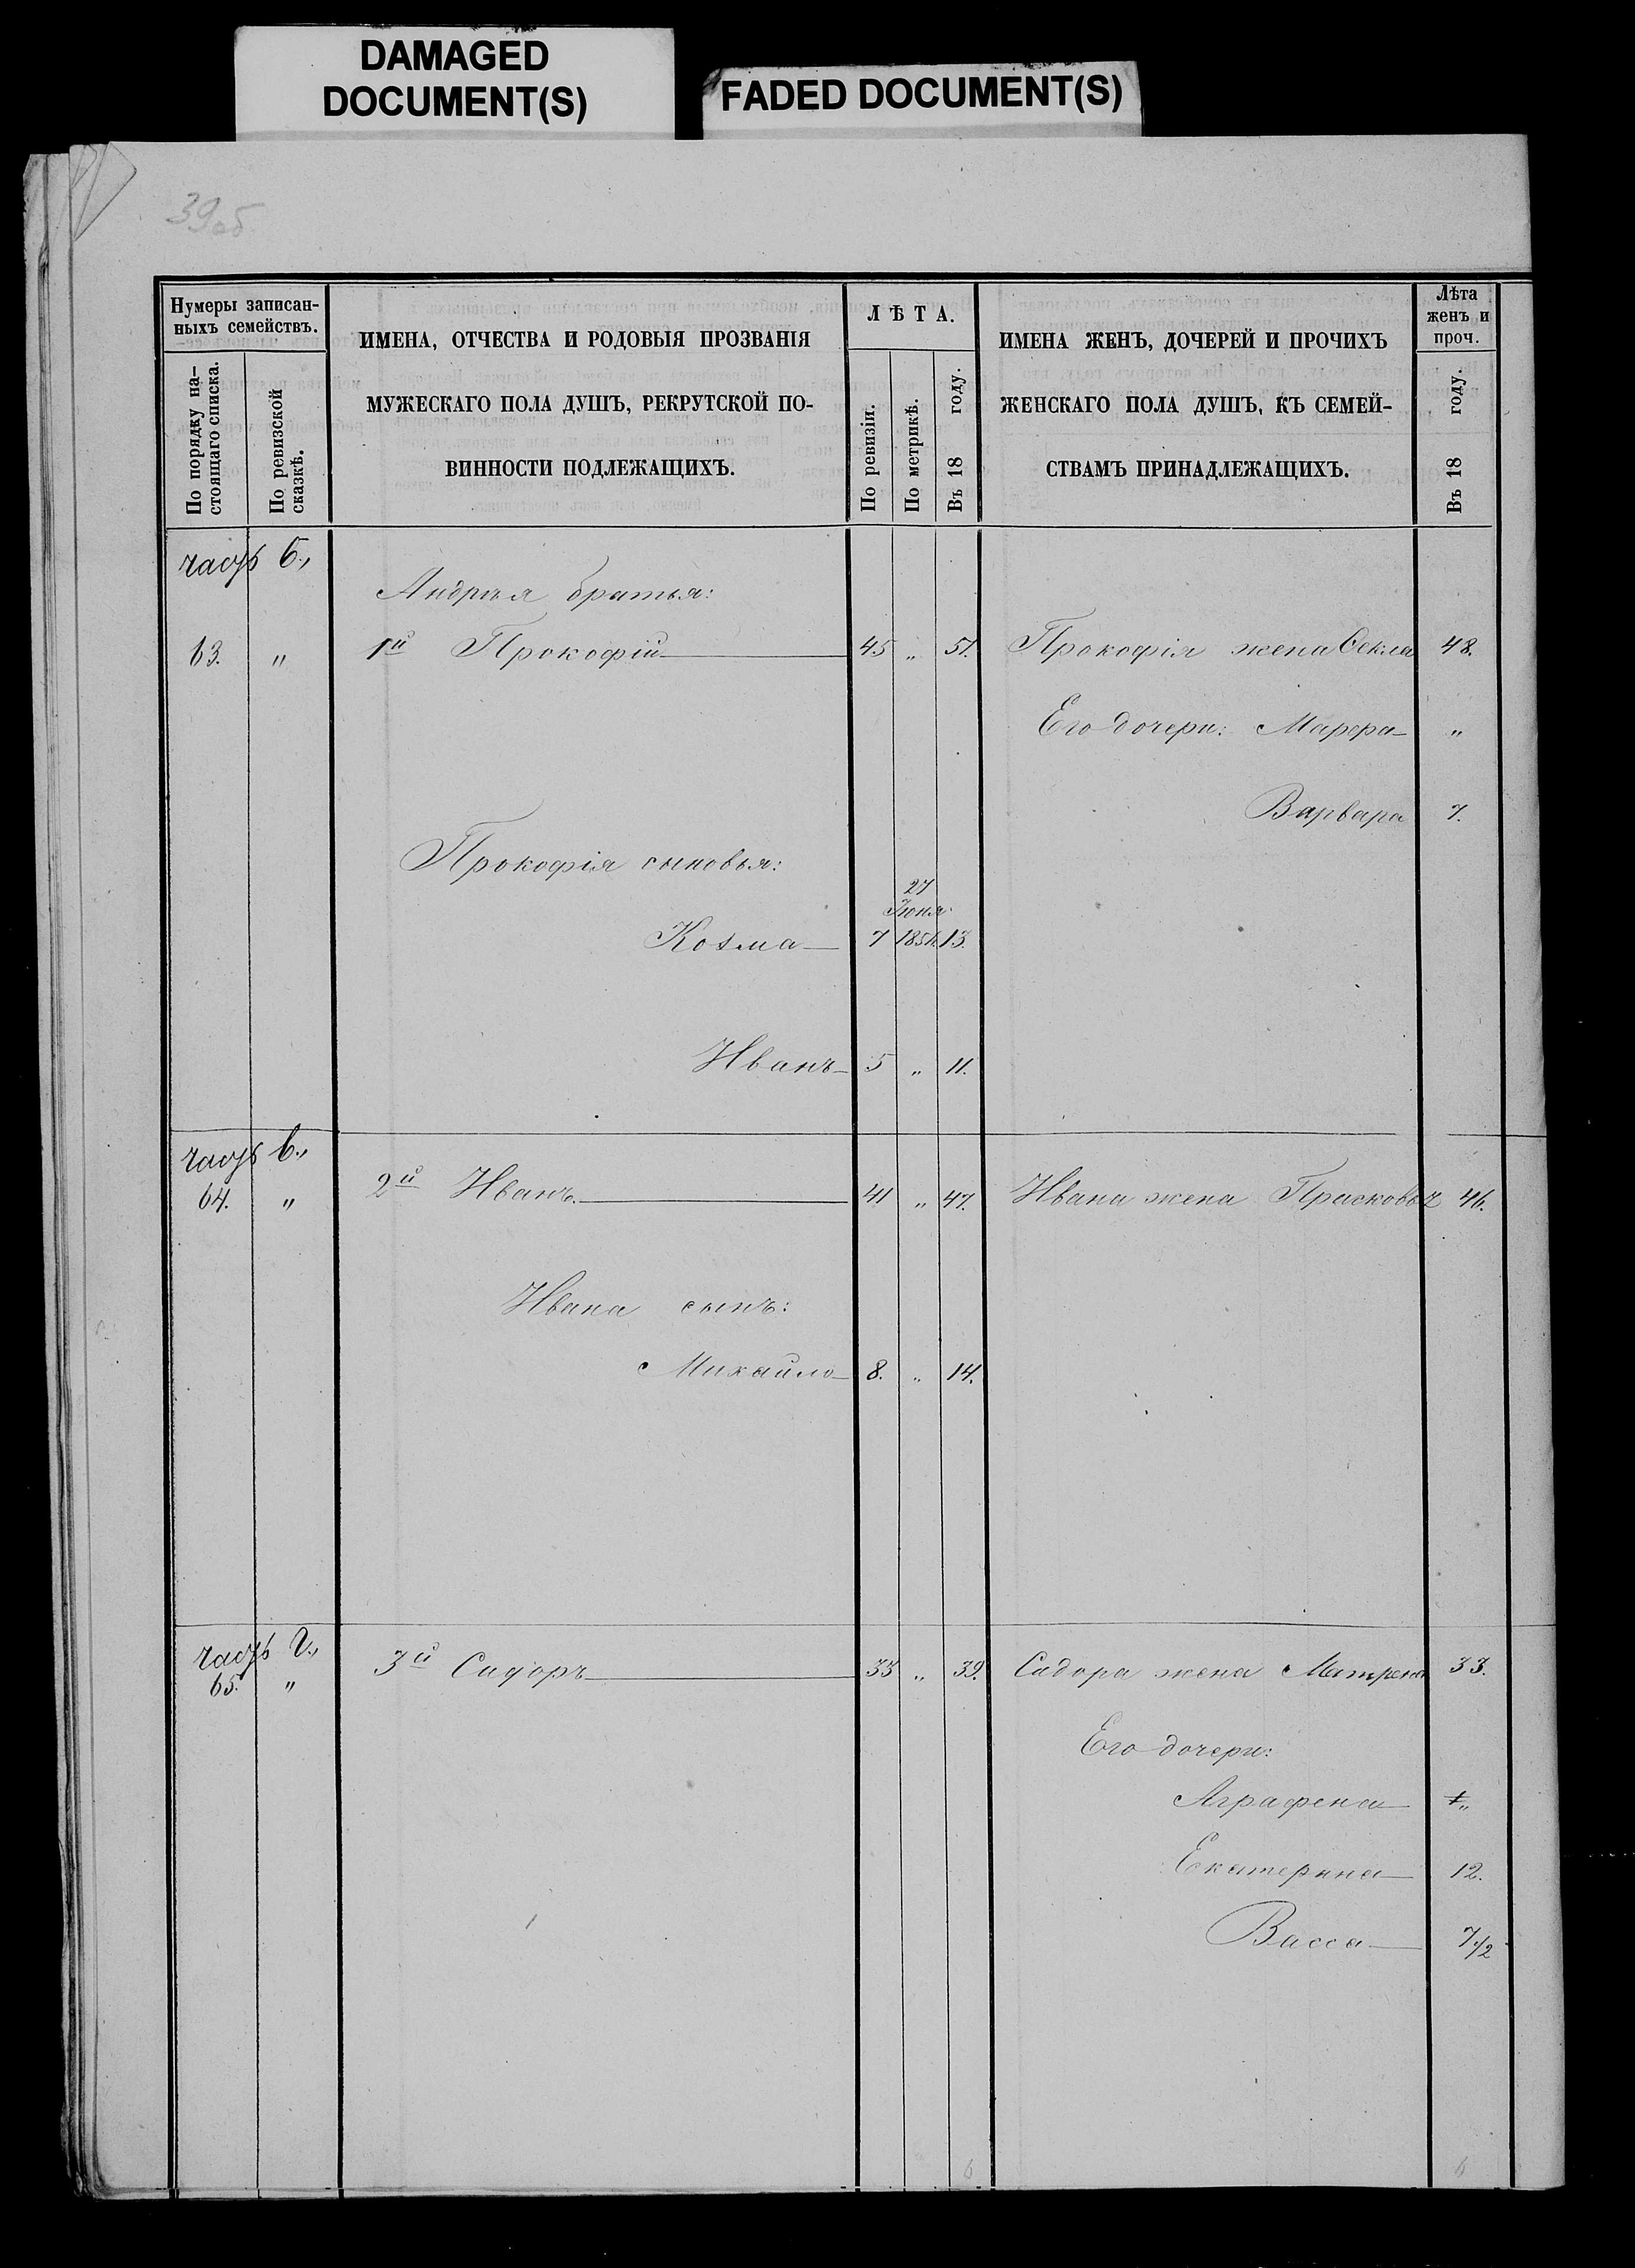 DAMAGED
DOCUMENT(S)
FADED DOCUMENT(S)
39об
Нумеры записан-
ныхъ семействъ.
По порядку на-
стоящаго списка.
По ревизской
сказкѣ.
ИМЕНА, ОТЧЕСТВА И РОДОВЫЯ ПРОЗВАНІЯ
МУЖЕСКАГО ПОЛА ДУШЪ, РЕКРУТСКОЙ ПО-
ВИННОСТИ ПОДЛЕЖАЩИХЪ.
ЛѢТА.
По ревизіи.
По метрикѣ.
Въ 18 году.
ИМЕНА ЖЕНЪ, ДОЧЕРЕЙ И ПРОЧИХЪ
ЖЕНСКАГО ПОЛА ДУШЪ, КЪ СЕМЕЙ-
СТВАМЪ ПРИНАДЛЕЖАЩИХЪ.
Лѣта
женъ и
проч.
Въ 18 году.
часть б.,
Андрея братья:
63. " 1й Прокофій 45 " 51. Прокофія жена Секла 48.
Его дочери: Марфа "
Варвара 7.
Прокофія сыновья:
27
Іюня
Козма 7 1851г. 13.
Иванъ 5 " 11.
часть в.,
64. " 2й Иванъ 41 " 47. Ивана жена Прасковья 46.
Ивана сынъ:
Михайло 8. " 14.
часть г.,
65. " 3й Сидоръ 33 " 39. Сидора жена Матрена 33.
Его дочери:
Аграфена "
Екатерина 12.
Васса 7 1/2
6 6